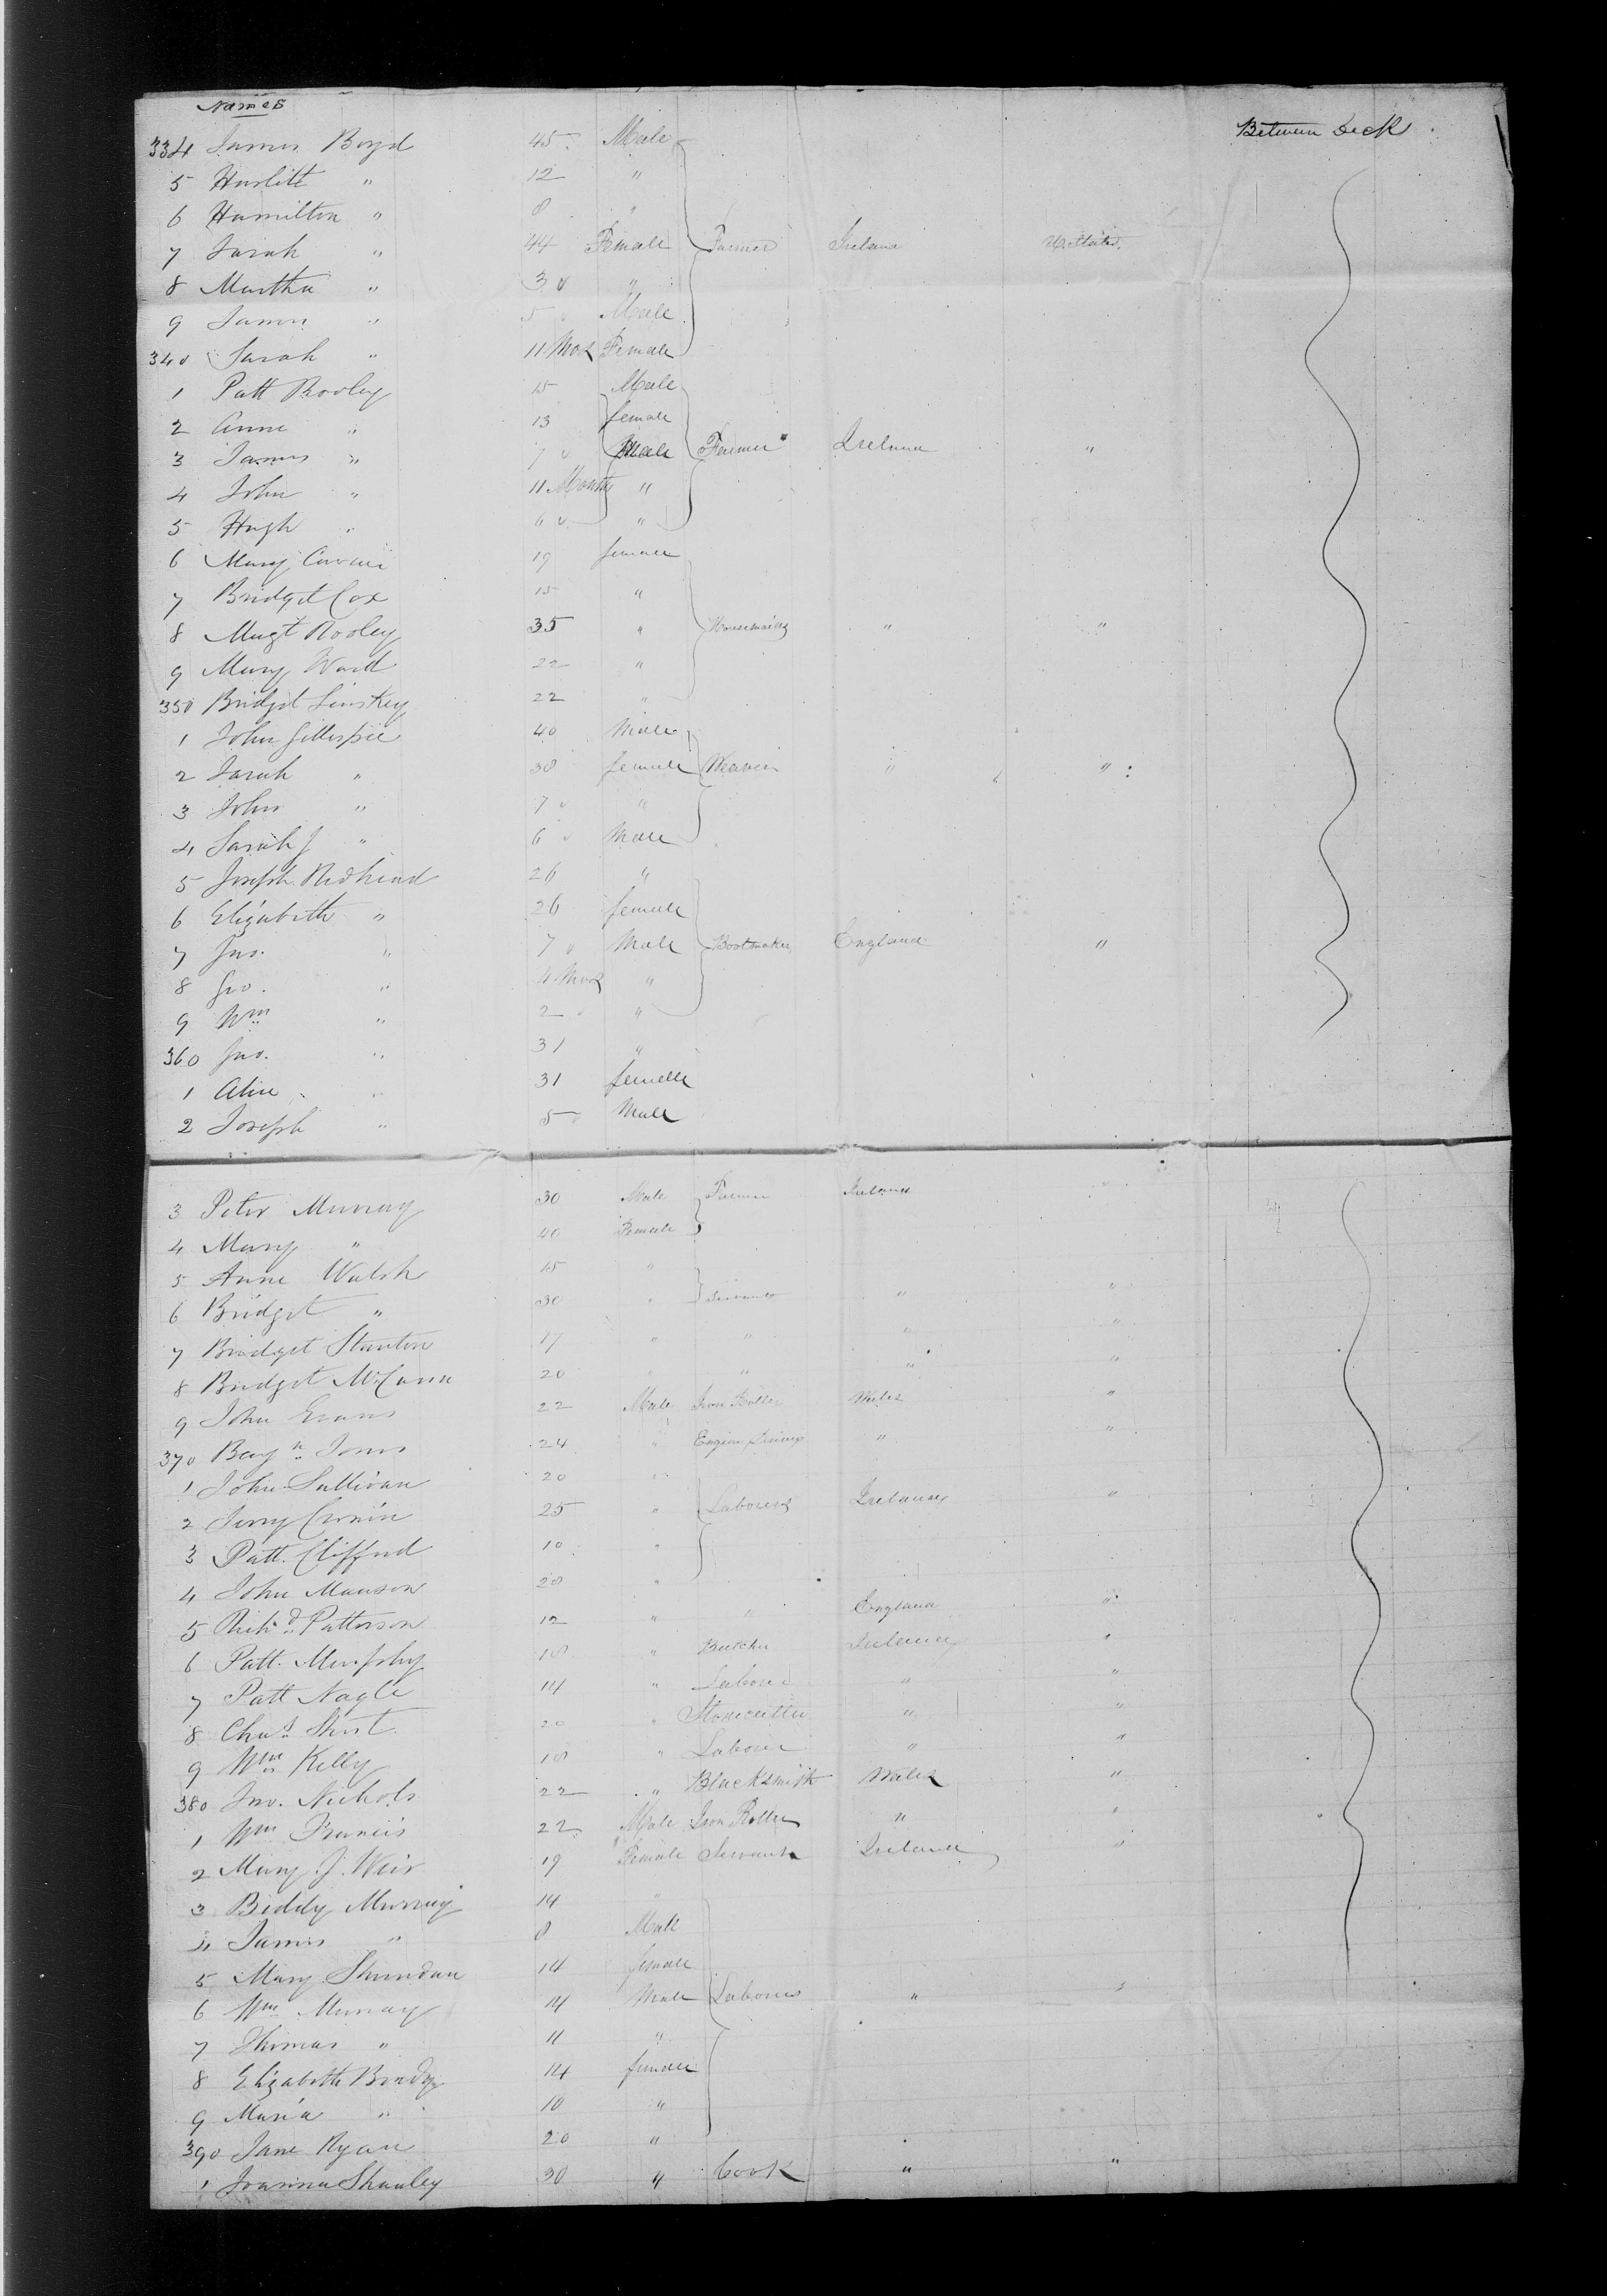 Names
Between Deck
334 James Boyd 45 Male
5 Haslitt " 12 "
6 Hamilton " 8 "
7 Sarah " 44 Female Farmer Ireland U States
8 Martha " 3 "
9 James " 5 Male
340 Sarah " 11 Mos Female
1 Patt Rooley 15 Male
2 Anne " 13 female
3 James " 7 Male Farmer Ireland "
4 John " 11 Months "
5 Hugh " 6 "
6 Mary 19 female
7 Bridget Cox 15 "
8 Magt Rooley 35 " Housemaids " "
9 Mary Ward 22 "
350 Bridget Linskey 22 "
1 John Gillespie 40 Male
2 Sarah " 38 female Weaver " "
3 John " 7 "
4 Sarah J " 6 Male
5 Joseph Redhead 26 "
6 Elizabeth " 26 female
7 Jno. " 7 Male Bootmaker England "
8 Geo. " 4 Mos "
9 Wm " 2 "
360 Jno. " 31 "
1 Alice " 31 female
2 Joseph " 5 Male
3 Peter Murray 30 Male Farmer Ireland "
4 Mary " 40 Female
5 Anne Walsh 15 "
6 Bridget " 30 " Servants " "
7 Bridget Stanton 17 " " " "
8 Bridget McCann 20 " " " "
9 John Evans 22 Male Iron Roller Wales "
370 Benjn Jones 24 " Engine Driver " "
1 John Sullivan 20 "
2 Jerry Cronin 25 " Laborers Ireland "
3 Patt. Clifford 10 "
4 John Manson 28 "
5 Richd Patterson 12 " " England "
6 Patt. Murphy 18 " Butcher Ireland "
7 Patt Nagle 14 " Laborer " "
8 Chas Short 20 " Stonecutter " "
9 Wm Kelly 18 " Laborer " "
380 Jno. Nichols 22 " Blacksmith Wales "
1 Wm Francis 22 Male Iron Roller " "
2 Mary J. Weir 19 Female Servant Ireland "
3 Biddy Murray 14 "
4 James " 8 Male
5 Mary 14 female
6 Wm Murray 14 Male Laborers " "
7 Thomas " 11 "
8 Elizabeth 14 female
9 Maria " 10 "
390 Jane Ryan 20 "
1 Joanna Shanley 30 " Cook " "